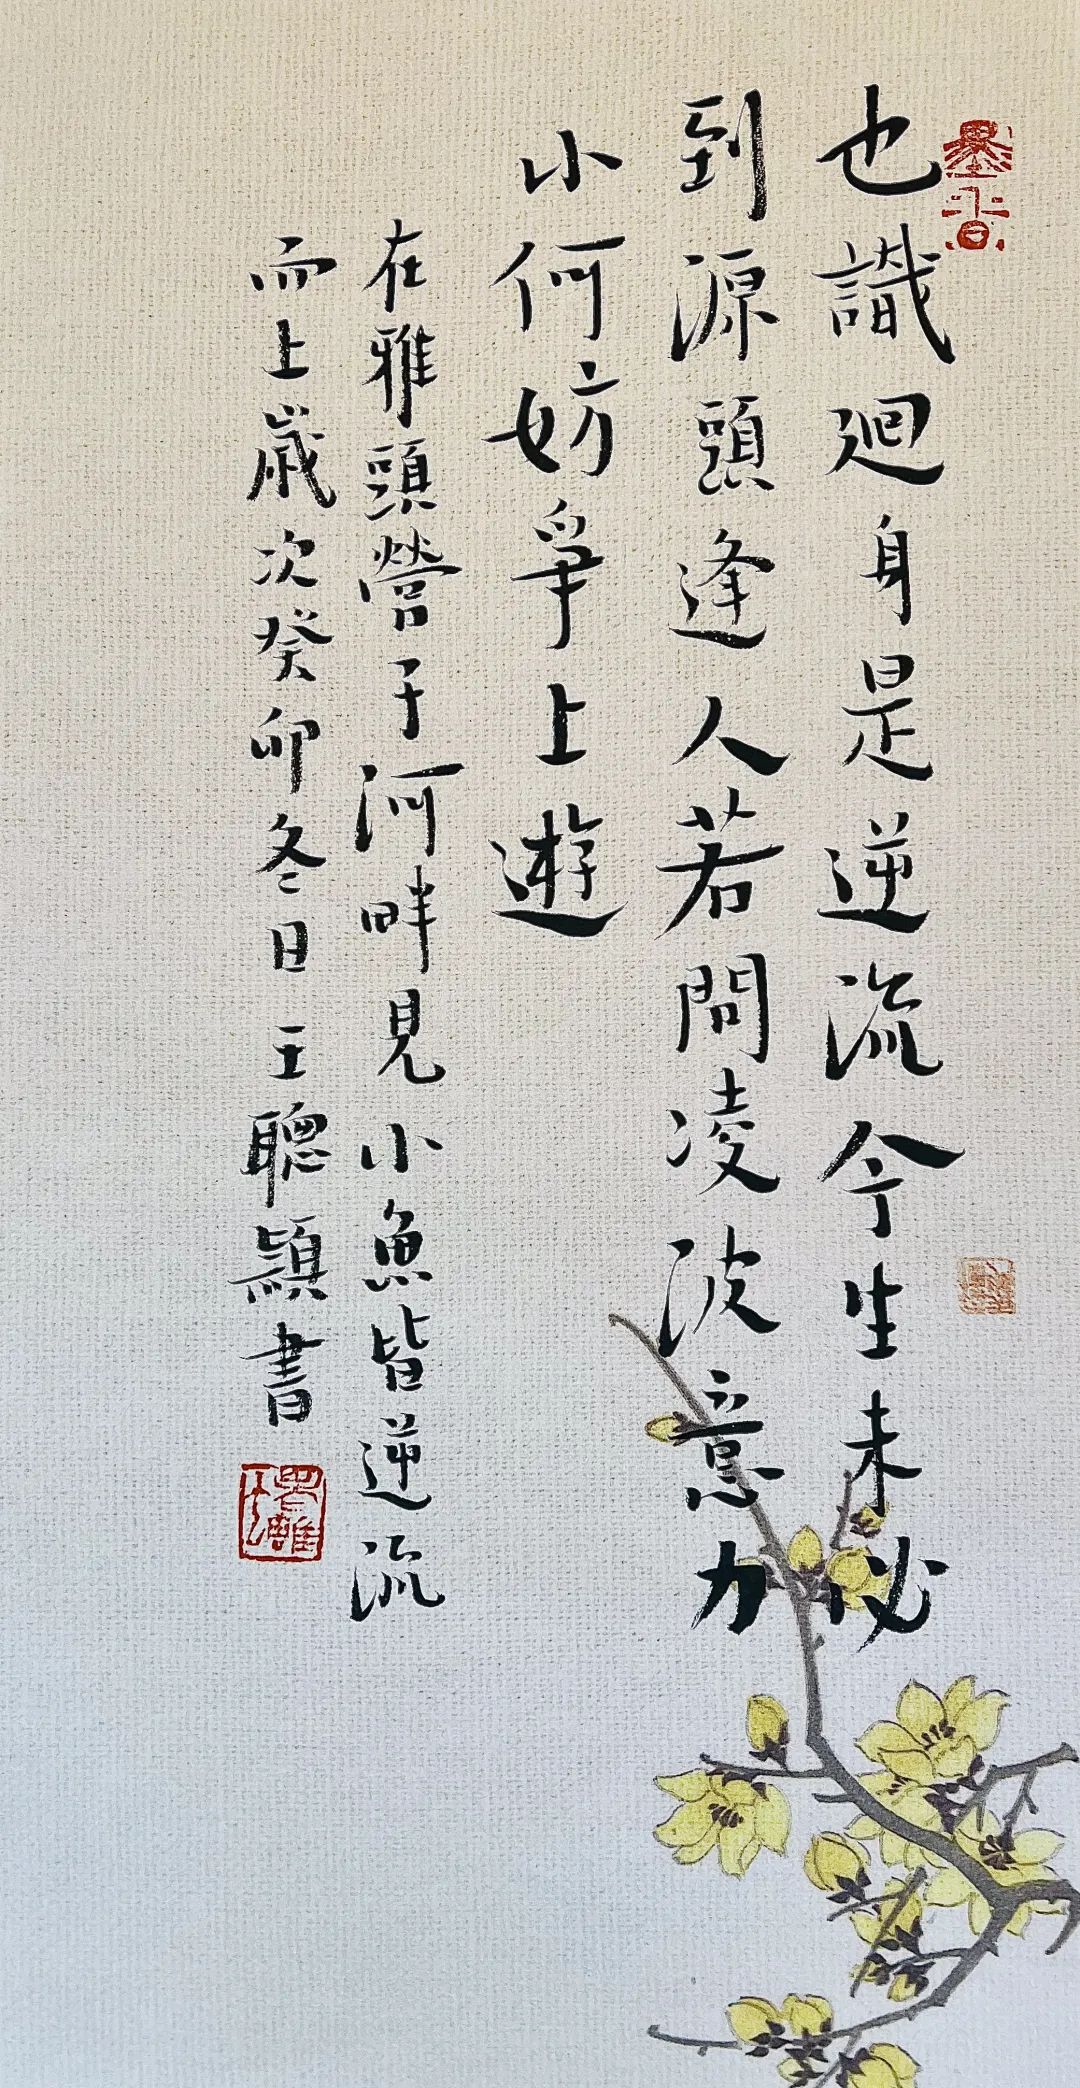 墨香
也識迴身是逆流今生未必
到源頭逢人若問凌波意力
小何妨爭上遊
在雅頭營子河畔見小魚皆逆流
而上歲次癸卯冬日王聰穎書